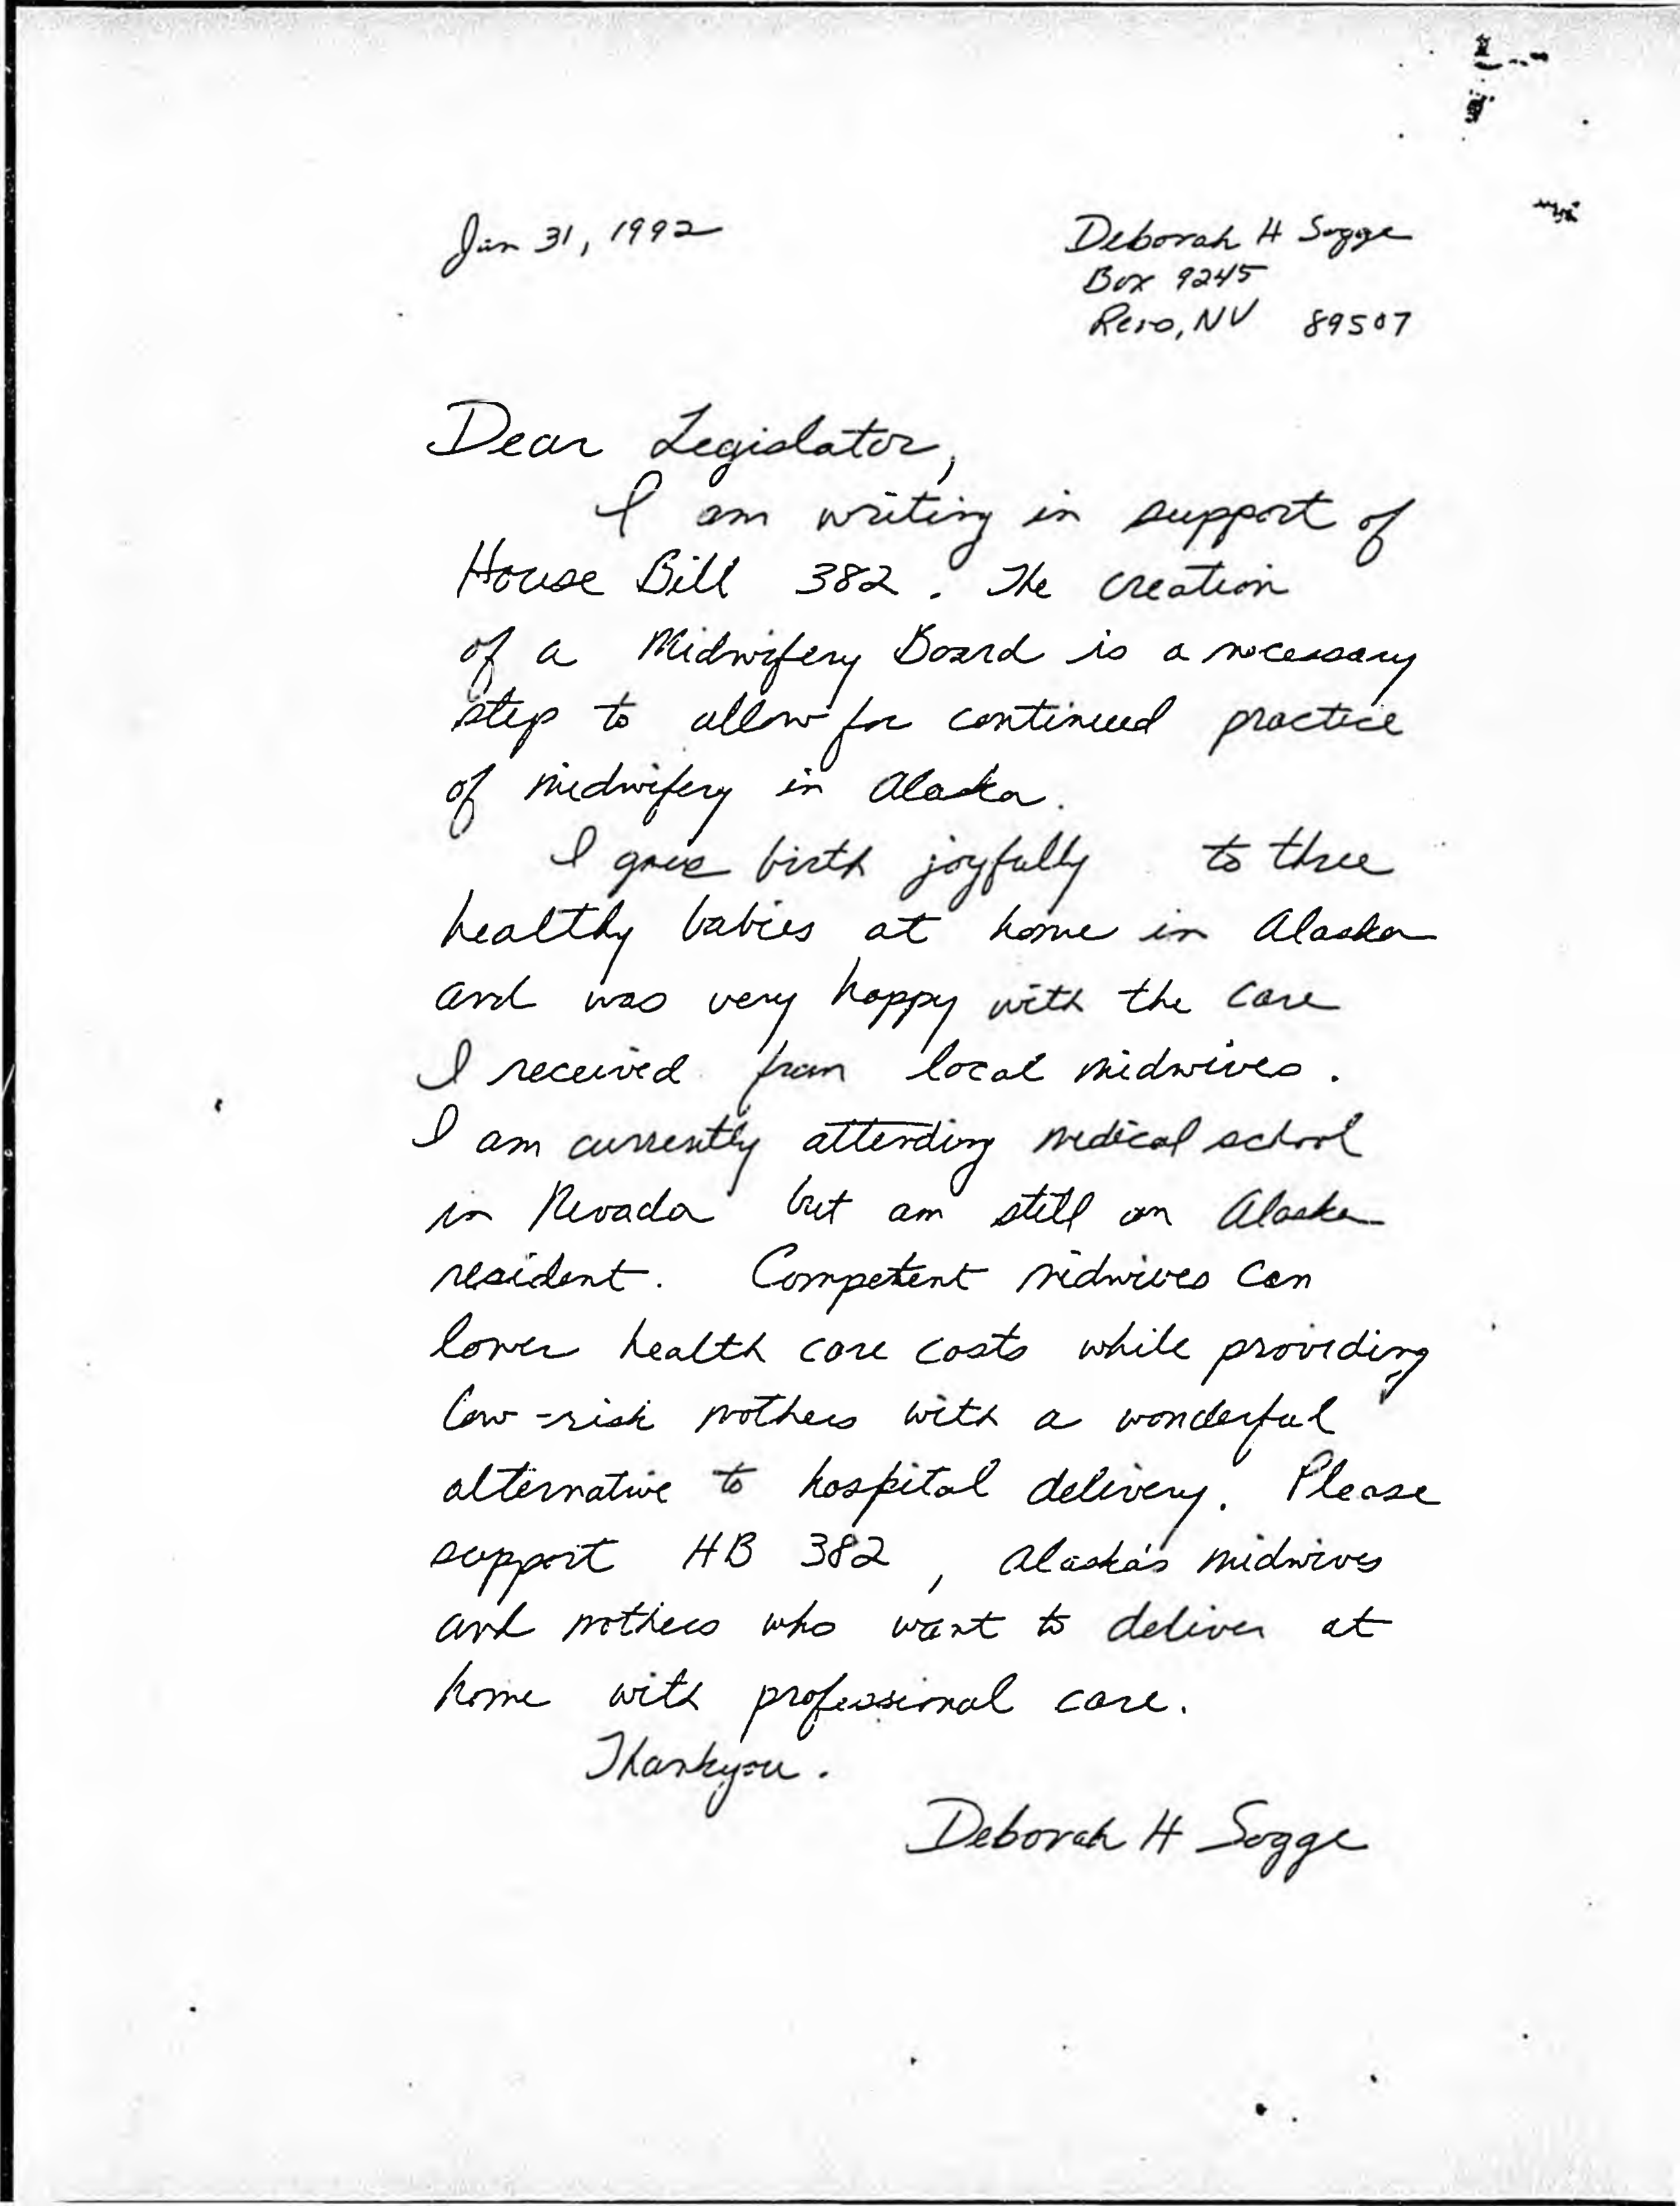 Jan 31, 1992
Deborah H Sogge
Box 9245
Reno, NV 89507
Dear Legislator,
I am writing in support of
House Bill 382. The creation
of a Midwifery Board is a necessary
step to allow for continued practice
of midwifery in Alaska.
I gave birth joyfully to three
healthy babies at home in Alaska
and was very happy with the care
I received from local midwives.
I am currently attending medical school
in Nevada but am still an Alaska
resident. Competent midwives can
lower health care costs while providing
low-risk mothers with a wonderful
alternative to hospital delivery. Please
support HB 382, Alaska's midwives
and mothers who want to deliver at
home with professional care.
Thankyou.
Deborah H Sogge